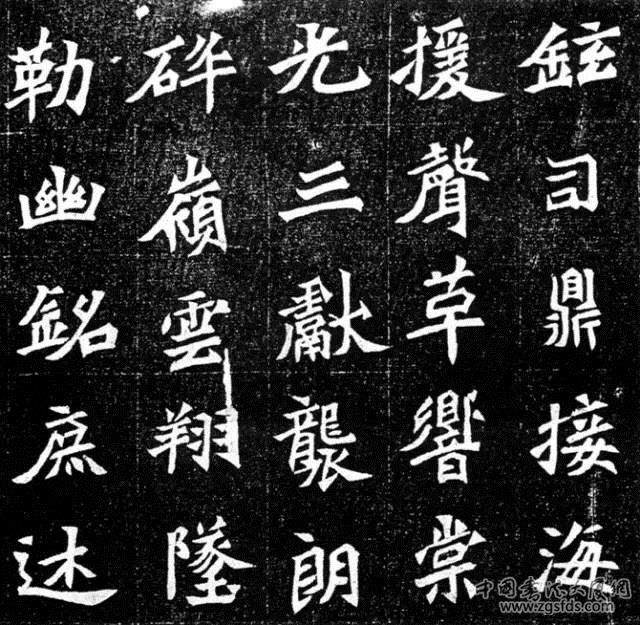 鉉司鼎接海
援聲草響棠
光三獻襲朗
砕嶺雲翔墜
勒幽銘庶述
中国书法大师网
www.zgsfds.com